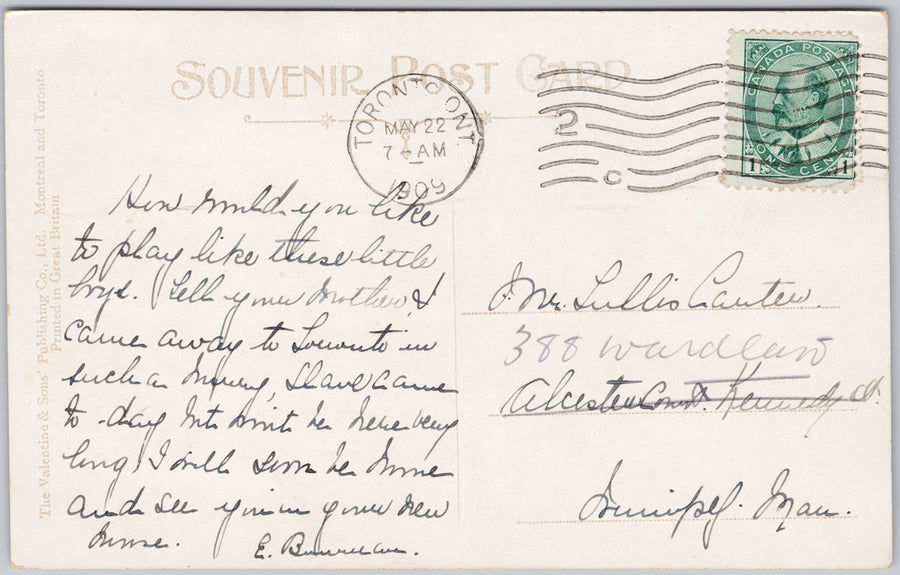 SOUVENIR POST CARD
TORONTO, ONT.
MAY 22
7 - AM
1909
2
C
CANADA POSTAGE
1 ONE CENT 1
The Valentine & Sons' Publishing Co., Ltd. Montreal and Toronto
Printed in Great Britain
How would you like
to play like these little
boys. Tell your mother I
came away to Toronto in
such a hurry, I have came
to day but won't be here very
long, I will soon be home
and see you in your new
house. E. Bowman.
Mr. Carter.
388 Wardlaw
Alcester Court. Kennedy St.
Winnipeg. Man.